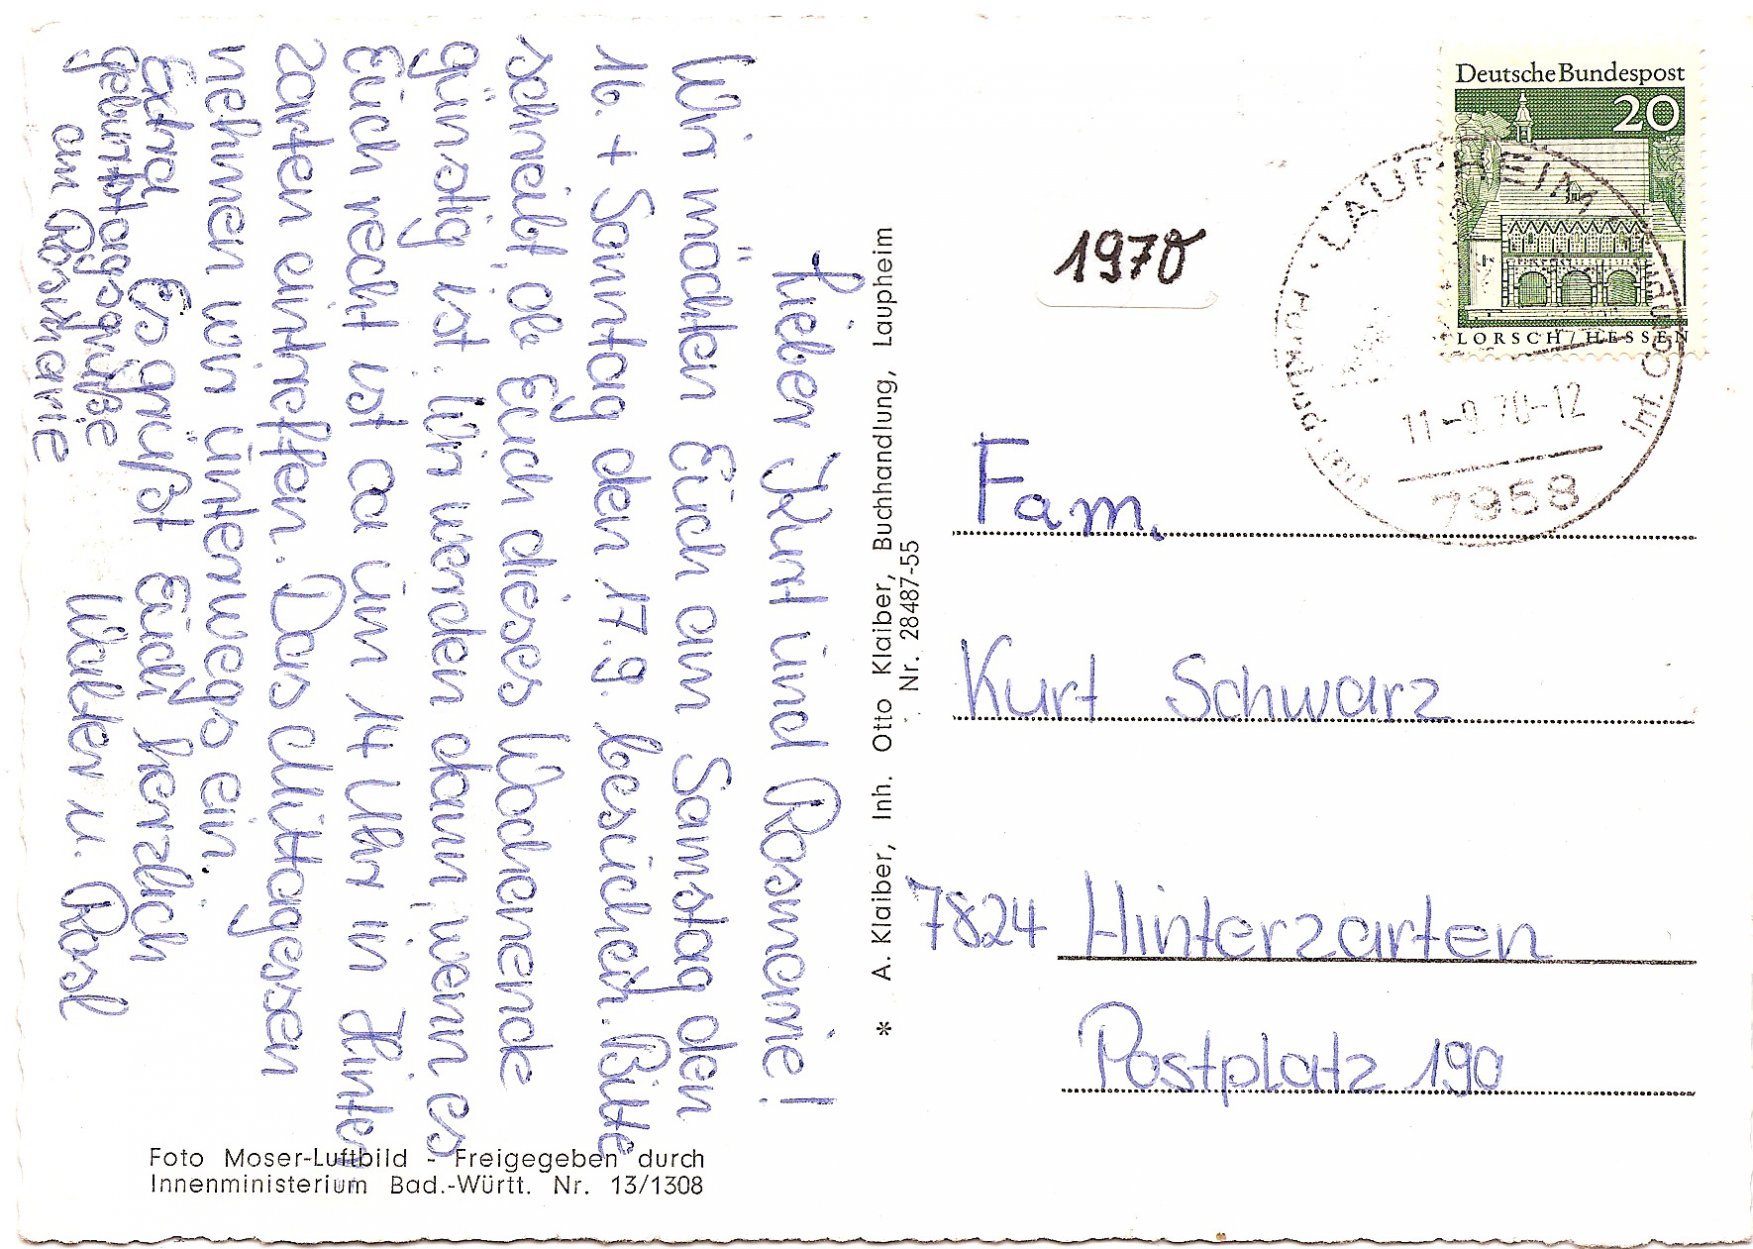 Lieber Kurt und Rosmarie!
Wir möchten Euch am Samstag den
16. + Sonntag den 17.9. besuchen. Bitte
schreibt, ob Euch dieses Wochenende
günstig ist. Wir werden dann, wenn es
Euch recht ist ca um 14 Uhr in Hinter
zarten eintreffen. Das Mittagessen
nehmen wir unterwegs ein.
Extra Es grüßt Euch herzlich
Geburtstagsgrüße
an Rosmarie
Walter u. Rosl
Foto Moser-Luftbild - Freigegeben durch
Innenministerium Bad.-Württ. Nr. 13/1308
* A. Klaiber, Inh. Otto Klaiber, Buchhandlung, Laupheim
Nr. 28487-55
1970
Deutsche Bundespost
20
LORSCH/HESSEN
LAUPHEIM
11.-9.70-12
7958
Fam.
Kurt Schwarz
7824 Hinterzarten
Postplatz 190